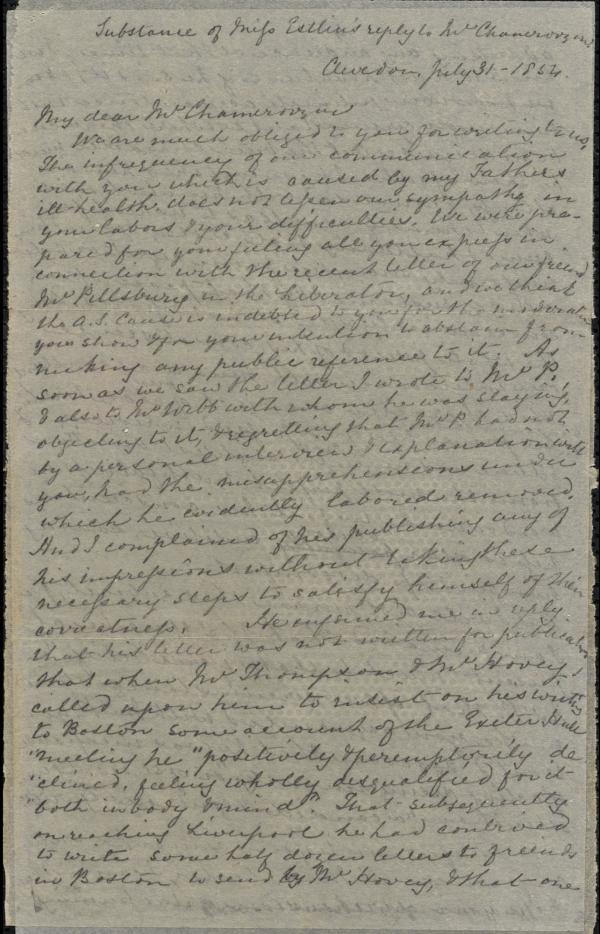 Substance of Miss Estlin's reply to Mr Chamerovzow
Clevedon, July 31 - 1854.
My dear Mr Chamerovzow
We are much obliged to you for writing to us,
The infrequency of our communication
with you which is caused by my Father's
ill health, does not lessen our sympathy in
your labors & your difficulties. We were pre-
pared for your feeling all you express in
connection with the recent letter of our friend
Mr Pillsbury in the Liberator, and we think
the A.S. Cause is indebted to you for the moderation
you show & for your intention to abstain from
making any public reference to it. As
soon as we saw the letter I wrote to Mr P.,
& also to Mr Webb with whom he was staying,
objecting to it, & regretting that Mr P. had not
by a personal interview & explanation with
you, had the misapprehensions under
which he evidently labored removed.
And I complained of his publishing any of
his impressions without taking these
necessary steps to satisfy himself of their
correctness. He informed me in reply
that his letter was not written for publication
that when Mr Thompson & Mr Hovey,
called upon him to insist on his writing
to Boston some account of the Exeter Hall
"meeting he "positively & peremptorily de
"clined, feeling wholly disqualified for it
"both in body & mind". That subsequently
on reaching Liverpool he had contrived
to write some half dozen letters to friends
in Boston to send by Mr Hovey, & that one